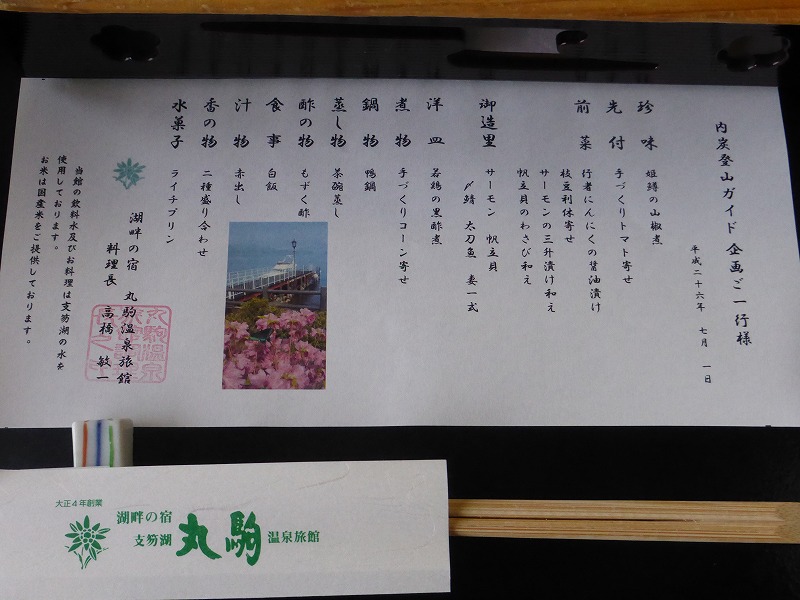 内炭登山ガイド企画ご一行様
平成二十六年 七月 一日
珍味 姫鱒の山椒煮
先付 手づくりトマト寄せ
前菜 行者にんにくの醤油漬け
枝豆利休寄せ
サーモンの三升漬け和え
帆立貝のわさび和え
御造里 サーモン 帆立貝
〆鯖 太刀魚 妻一式
洋皿 若鶏の黒酢煮
煮物 手づくりコーン寄せ
鍋物 鴨鍋
蒸し物 茶碗蒸し
酢の物 もずく酢
食事 白飯
汁物 赤出し
香の物 二種盛り合わせ
水菓子 ライチプリン
湖畔の宿 丸駒温泉旅館
料理長 高橋敏一
当館の飲料水及びお料理は支笏湖の水を
使用しております。
お米は国産米をご提供しております。
大正4年創業
湖畔の宿
支笏湖 丸駒 温泉旅館